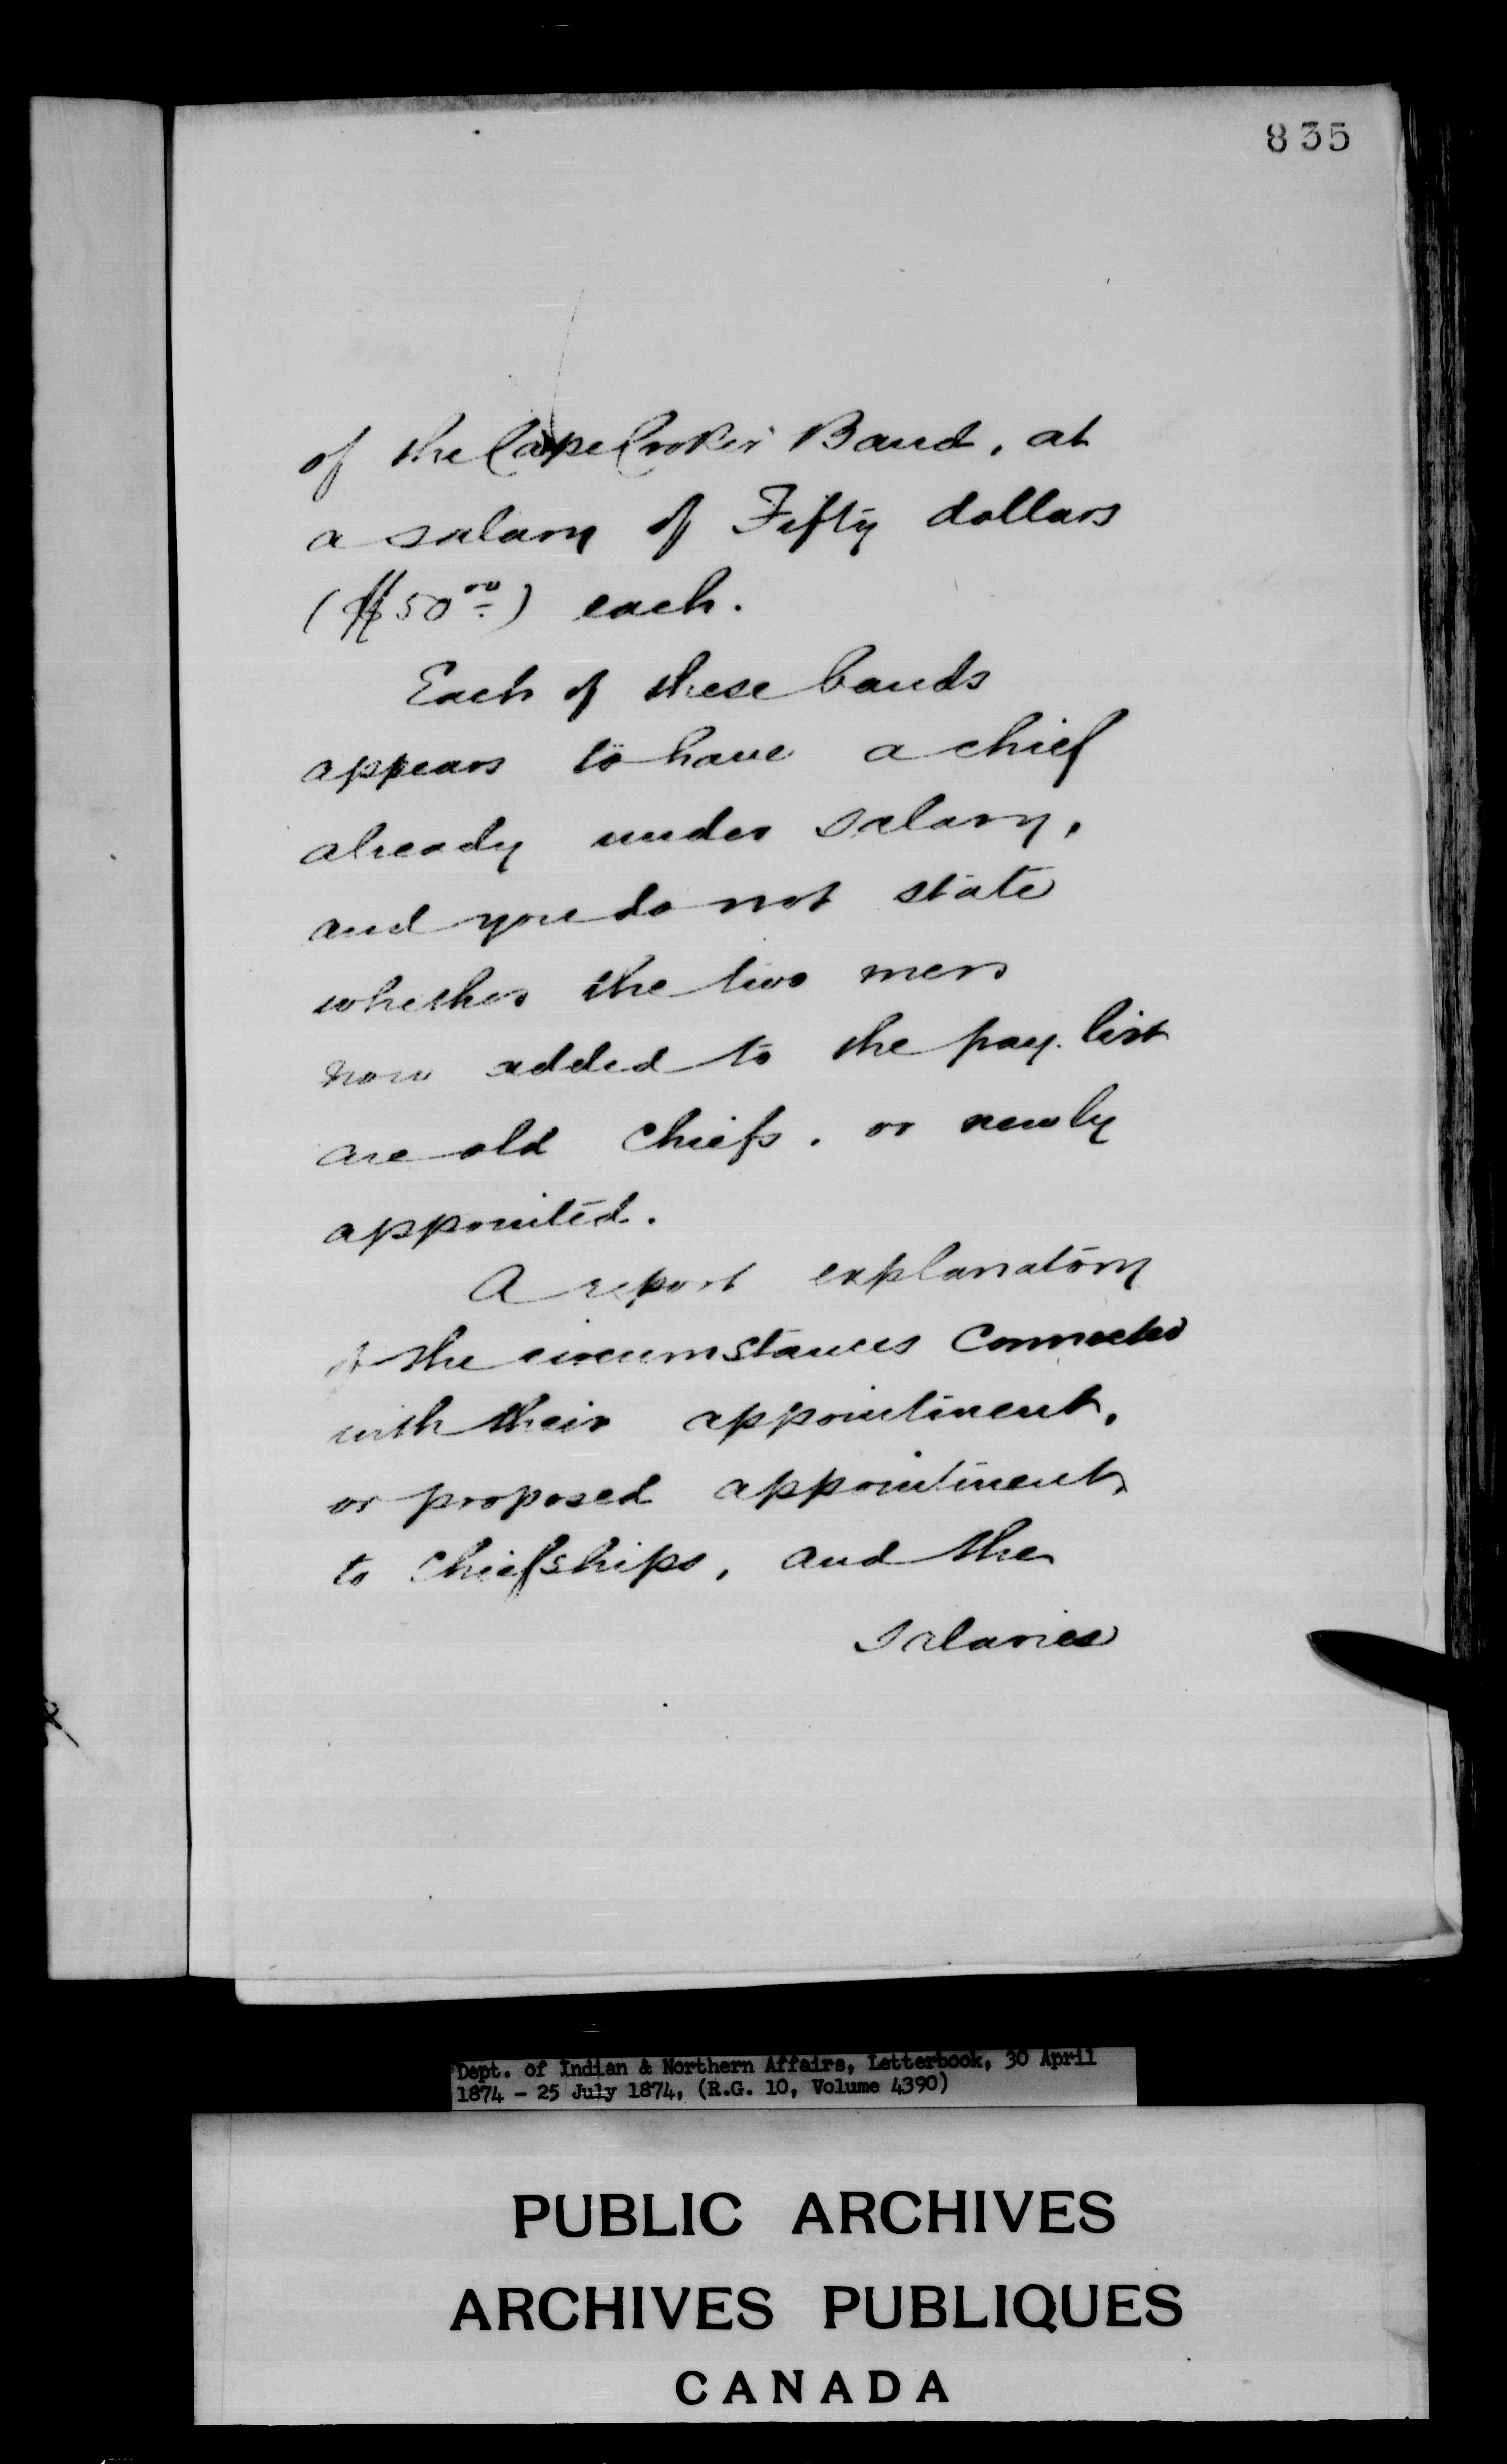 835
of the Cape Croker Band, at
a salary of Fifty dollars
($50.00) each.
Each of these bands
appears to have a chief
already under salary,
and you do not state
whether the two men
now added to the pay list
are old Chiefs, or newly
appointed.
A report explanatory
of the circumstances connected
with their appointment,
or proposed appointment,
to Chiefships, and the
salaries
Dept. of Indian & Northern Affairs, Letterbook, 30 April
1874 - 25 July 1874, (R.G. 10, Volume 4390)
PUBLIC ARCHIVES
ARCHIVES PUBLIQUES
CANADA